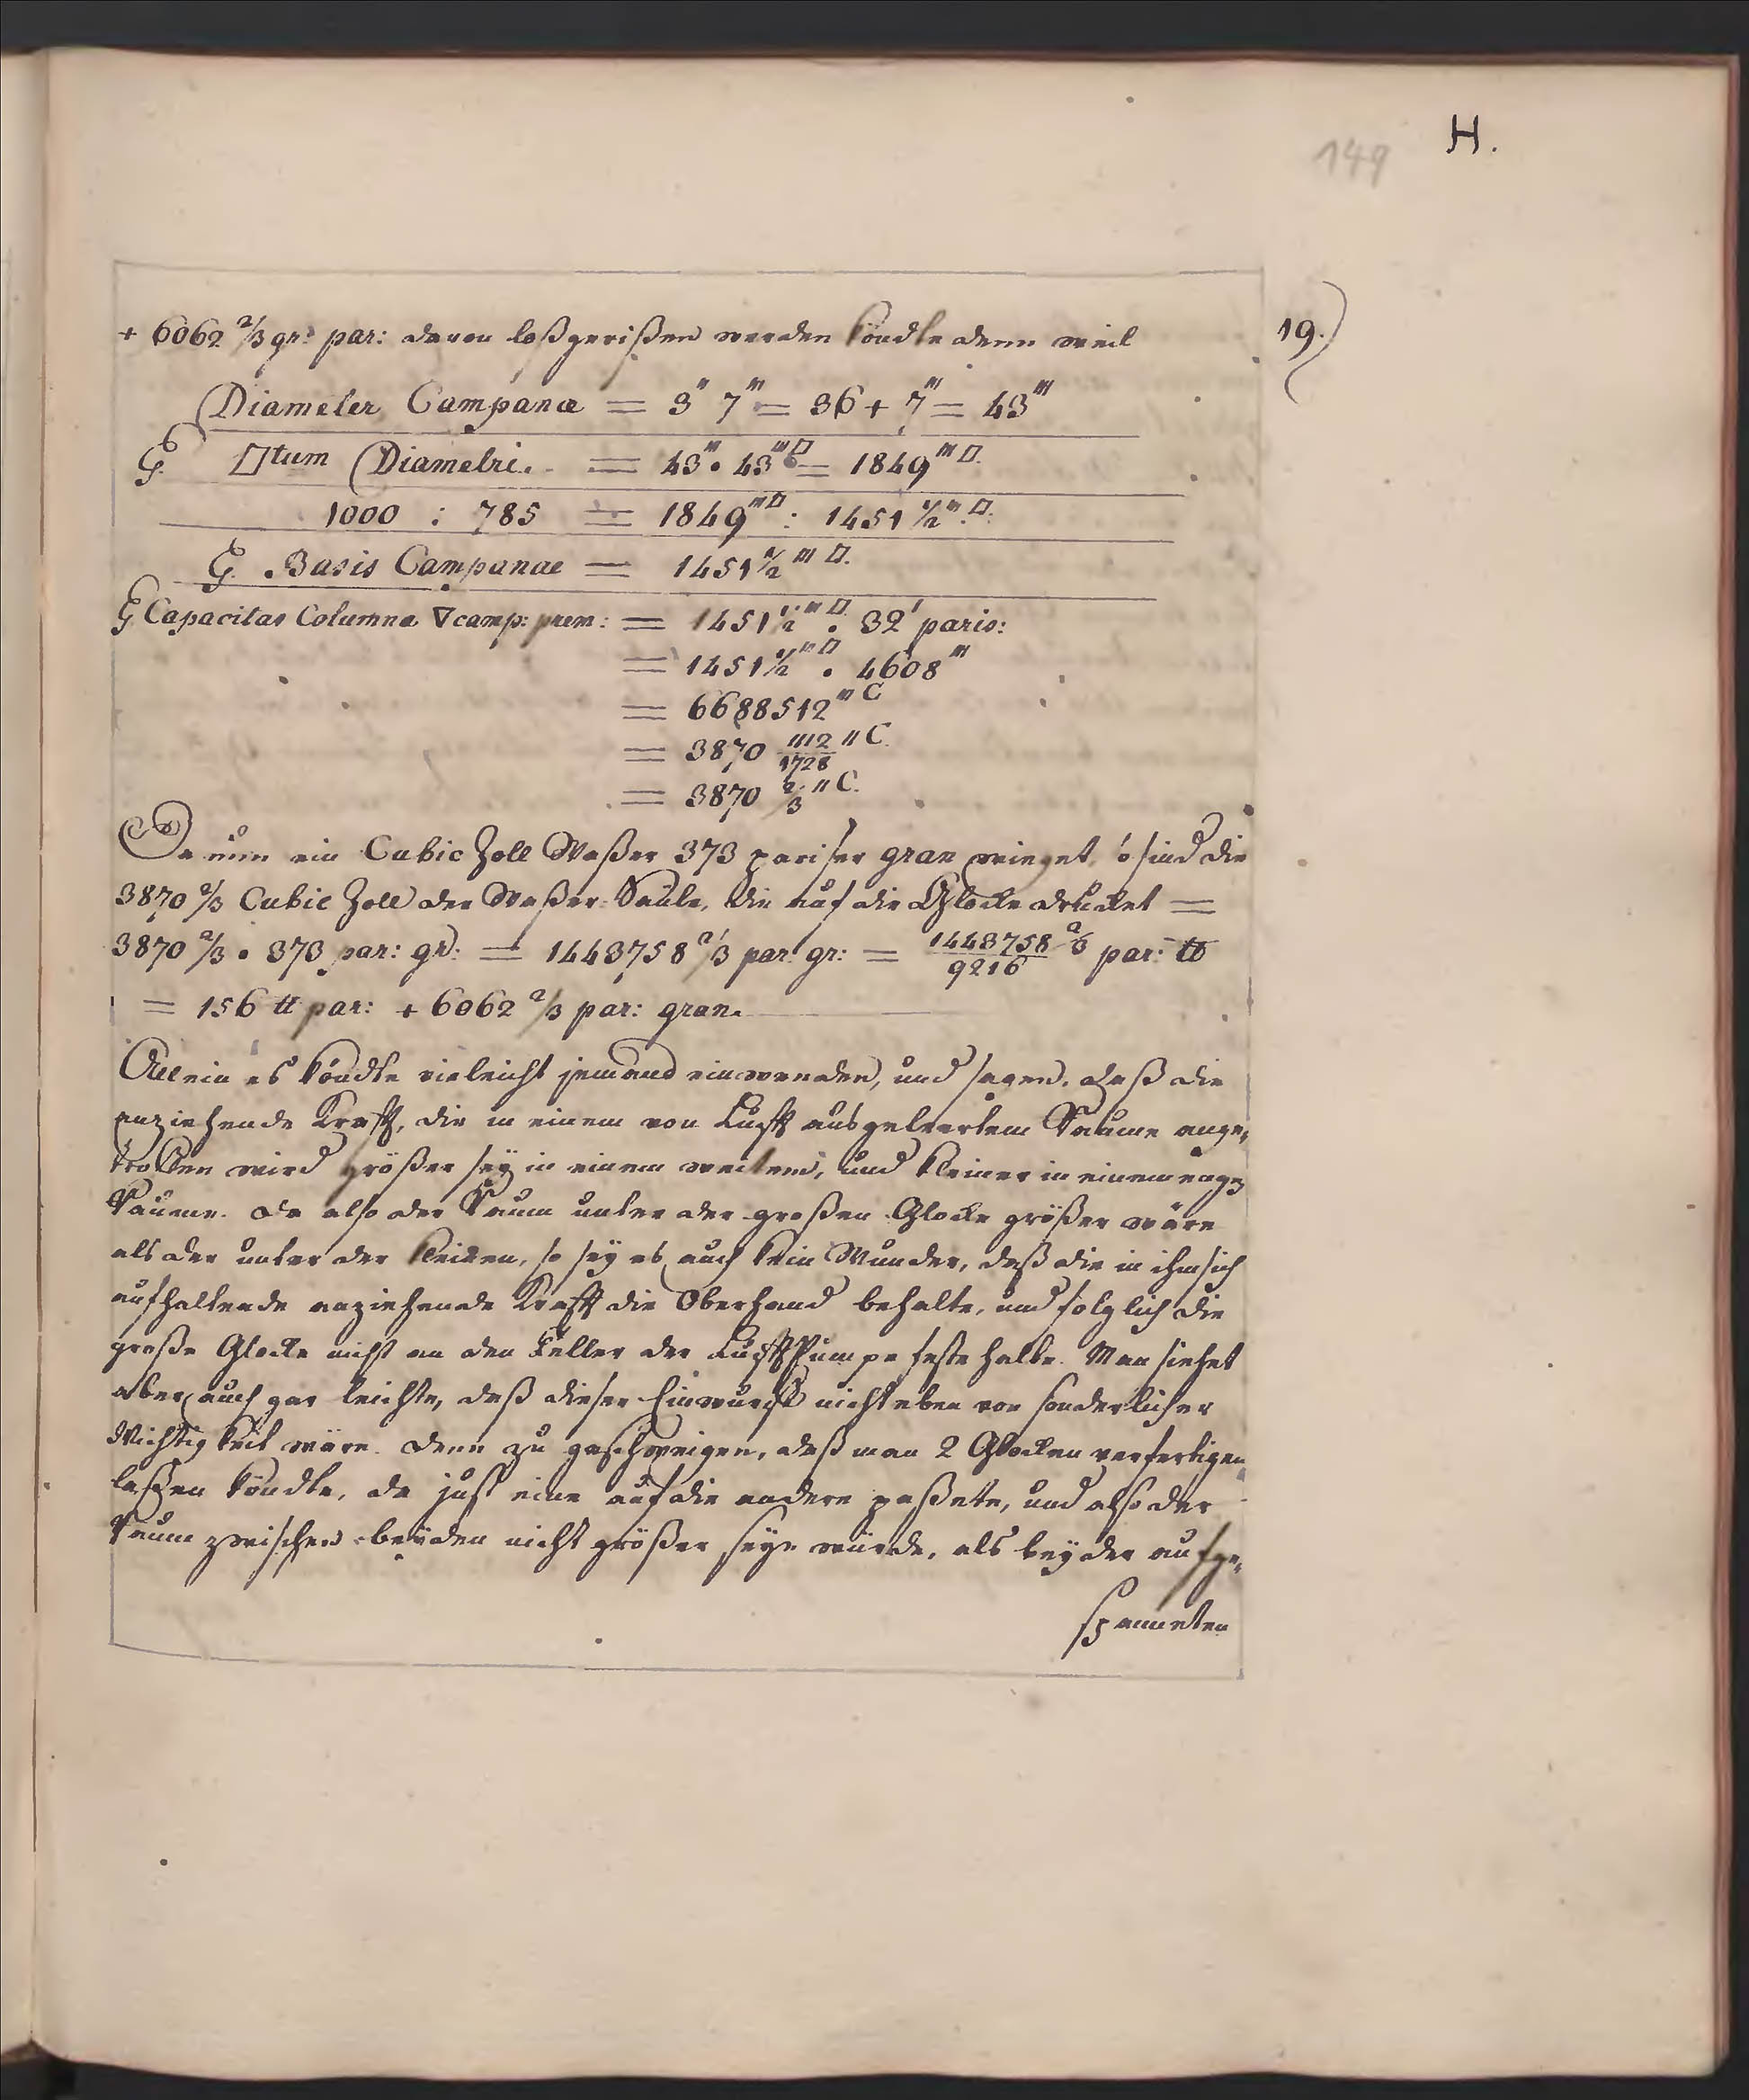 149 H.
19.)
+ 6062 2/3 gr: par: davon loßgerißen werden köndte denn weil
Diameter Campanæ = 3'' 7''' = 36 + 7''' = 43'''
E. □tum Diametri. = 43'''. 43''' □ = 1849''' □.
1000 : 785 = 1849''' □ : 1451 1/2 ''' □.
E. Basis Campanae = 1451 1/2 ''' □.
E Capacitas Columnæ ▽ camp: prem: = 1451 1/2 ''' □. 32' paris:
= 1451 1/2 ''' □ . 4608'''
= 6688512''' C
= 3870 1112/1728 '' C.
= 3870 2/3 '' C.
Da nun ein Cubic Zoll Waßer 373 pariser gran wieget, so sind die
3870 2/3 Cubic Zoll der Waßer-Säule, die auf die Glocke drücket =
3870 2/3 . 373 par: gr: = 1443758 2/3 par: gr: = 1443758 2/3 / 9216 par: ℔
= 156 ℔ par: + 6062 2/3 par: gran.
Allein es köndte vieleicht jemand einwenden, und sagen, daß die
anziehende Krafft, die in einem von Lufft ausgeleertem Raume ange-
troffen wird größer seÿ in einem weitem, und kleiner in einem enge
Raume. da also der Raum unter der großen Glocke größer wäre
als der unter der kleinen, so seÿ es auch kein Wunder, daß die in ihm sich
aufhaltende anziehende Krafft die Oberhand behalte, und folglich die
große Glocke nicht an den Teller der LufftPumpe feste halte. Man siehet
aber auch gar leichte, daß dieser Einwurff nicht eben von sonderlicher
Wichtigkeit wäre. denn zu geschweigen, daß man 2 Glocken verfertigen
laßen köndte, da just eine auf die andere paßete, und also der
Raum zwischen beÿden nicht größer seÿn würde, als beÿ der aufge-
spanneten